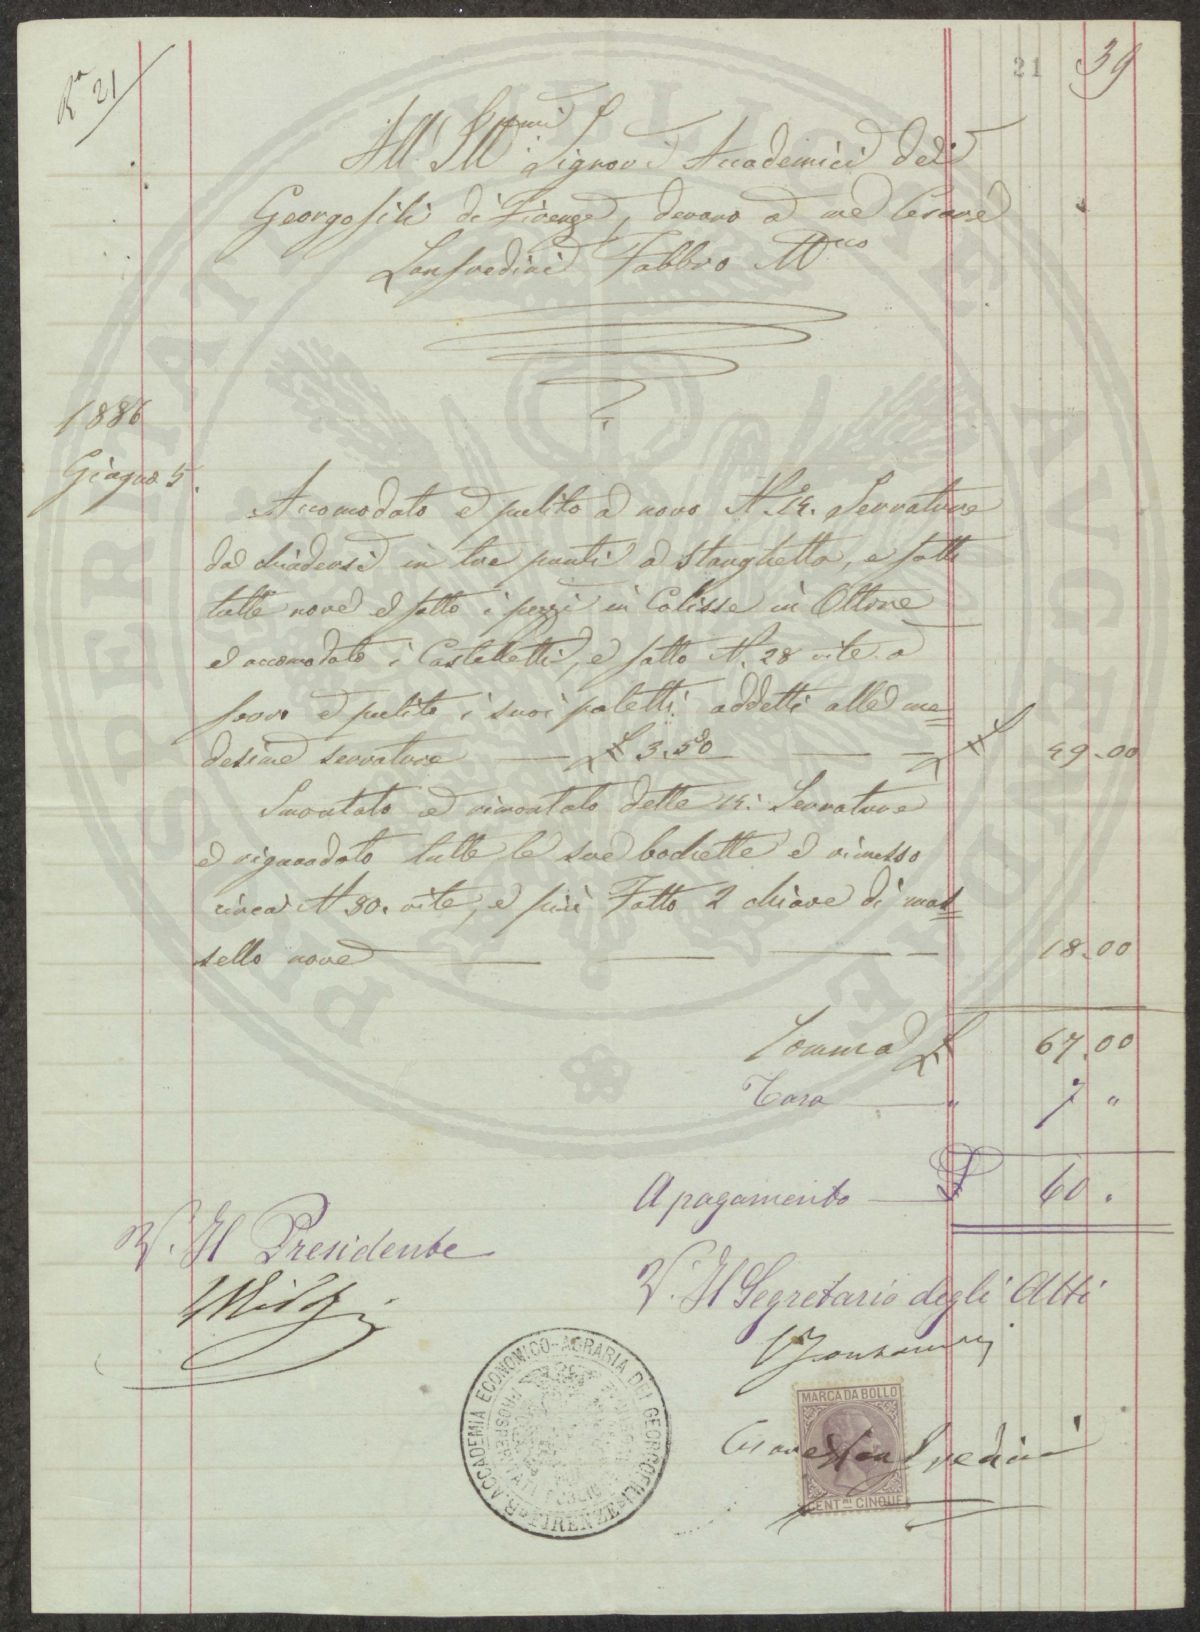 Rª 21
21 39
All' Ill.mi Signori Accademici dei
Georgofili di Firenze, devano a me Cesare
Lanfredini Fabbro M.co
1886
Giugno 5.
Accomodato e pulito a novo N. 14. Serrature
da chiudersi in tre punti a stanghetta, e fatte
tutte nove e fatto i pezzi in Colisse in Ottone
e accomodato i Castelletti, e fatto N. 28 vite a
ferro e pulito i suoi paletti addetti alle me=
desime serrature £ 3.50 £ 49.00
Smontato e rimontato dette 14: Serrature
e riguardato tutte le sue bochette e rimesso
circa N 30. vite, e più Fatto 2 chiave di mas=
sello nove 18.00
Somma £ 67.00
Tara " 7 "
A pagamento £ 60.
V. Il Presidente
V. Il Segretario degli Atti
R. ACCADEMIA ECONOMICO-AGRARIA DEI GEORGOFILI FIRENZE
PROSPERITATI PUBLICAE AUGENDAE
MARCA DA BOLLO
Cesare Lanfredini
CENT.MI CINQUE